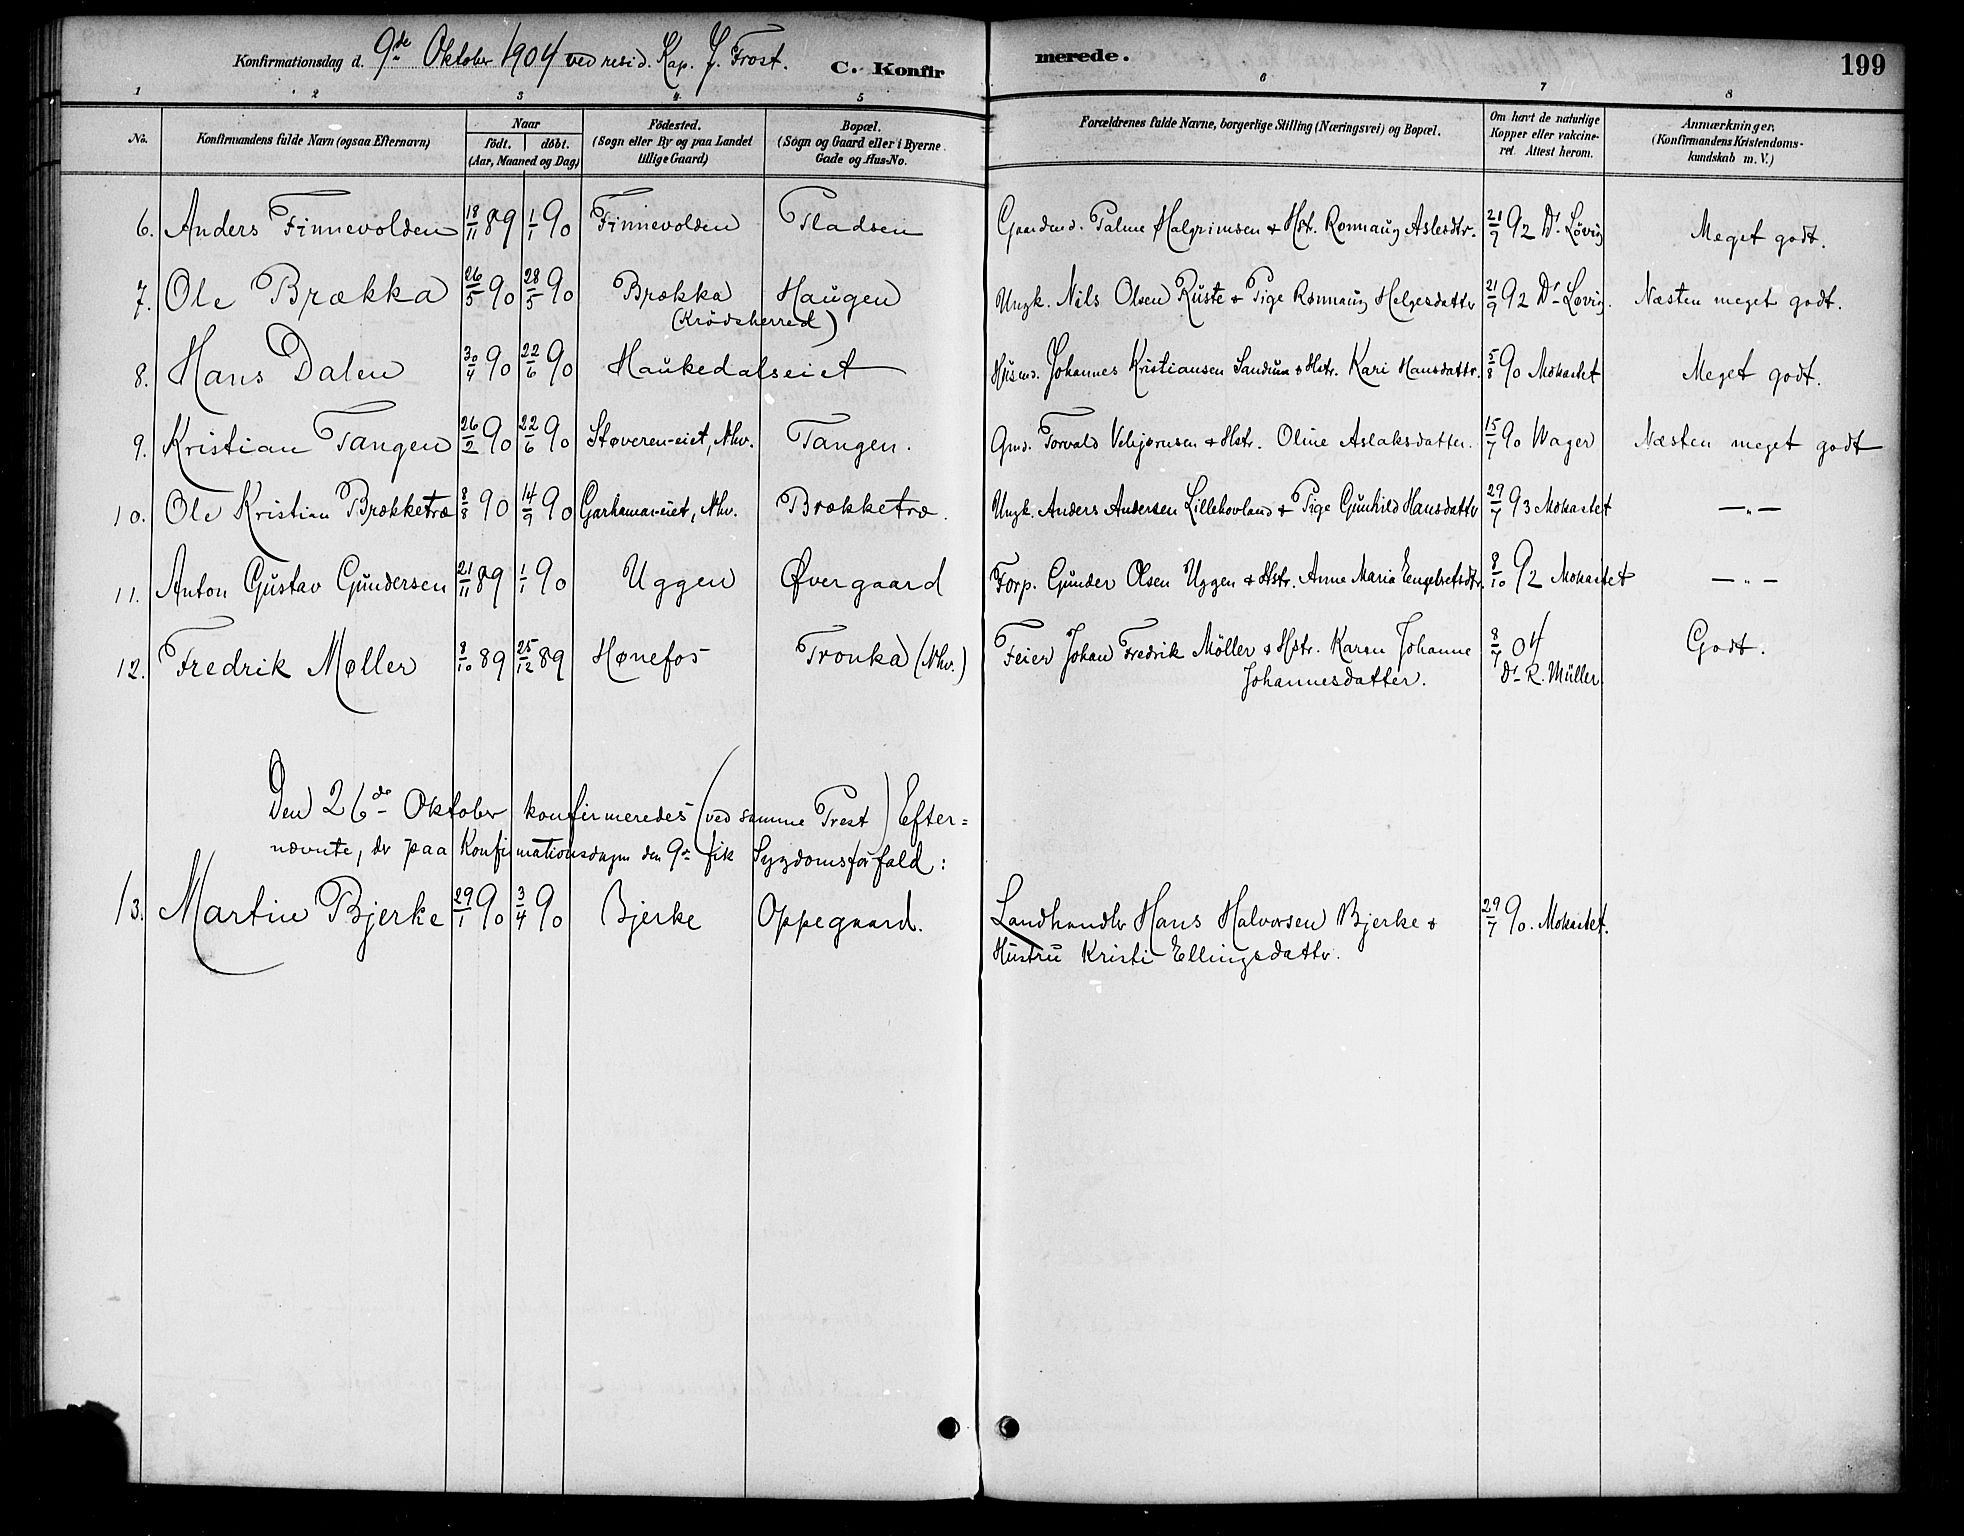 Konfirmationsdag d. 9de Oktober 1904 ved resid. Kap. J. Frost. C. Konfirmerede. 199
1 2 3 4 5 6 7 8
No. Konfirmandens fulde Navn (ogsaa Efternavn) Naar födt. döbt. (Aar, Maaned og Dag) Födested. (Sogn eller By og paa Landet tillige Gaard) Bopæl. (Sogn og Gaard eller i Byerne Gade og Hus-No. Forældrenes fulde Navne, borgerlige Stilling (Næringsvei) og Bopæl. Om havt de naturlige Kopper eller vakcineret. Attest herom. Anmærkninger. (Konfirmandens Kristendomskundskab m. V.)
6. Anders Finnevolden 18/11 89 1/1 90 Finnevolden Pladsen Gaardmd. Palme Halgrimsen & Hstr. Rønnaug Aslesdtr. 21/9 92 Dr. Lövig Meget godt.
7. Ole Brækka 26/5 90 28/5 90 Brækka (Krödsherred) Haugen Ungk. Nils Olsen Ruste & Pige Rønnaug Helgesdatter 21/9 92 Dr. Løvig. Næsten meget godt.
8. Hans Dalen 30/4 90 22/6 90 Haukedalseiet Husmd. Johannes Kristiansen Sandum & Hstr. Kari Hansdattr. 5/8 90 Mokastet Meget godt.
9. Kristian Tangen 26/2 90 22/6 90 Støveren-eiet, Nhv. Tangen. Gmd. Torvald Vebjørnsen & Hstr. Oline Aslaksdatter. 15/7 90 Wager Næsten meget godt
10. Ole Kristian Brækketræ 8/8 90 14/9 90 Garhamar-eiet, Nhv. Brækketræ. Ungk. Anders Andersen Lillehovland & Pige Gunhild Hansdatter 29/7 93 Mokastet —„—
11. Anton Gustav Gundersen 21/11 89 1/1 90 Uggen Øvergaard Forp. Gunder Olsen Uggen & Hstr. Anne Maria Engebretsdtr. 8/10 92 Mokastet —„—
12. Fredrik Møller 8/10 89 25/12 89 Hønefos Tronka (Nhv.) Feier Johan Fredrik Möller & Hstr. Karen Johanne 8/7 04 Godt.
Johannesdatter. Dr. R. Müller
Den 26de Oktober konfirmeredes (ved samme Prest) Efter=
nævnte, der paa Konfirmationsdagen den 9de fik Sygdomsforfald:
13. Martin Bjerke 29/1 90 3/4 90 Bjerke Oppegaard. Landhandler Hans Halvorsen Bjerke & 29/7 90. Mokastet.
Hustru Kristi Ellingsdatter.